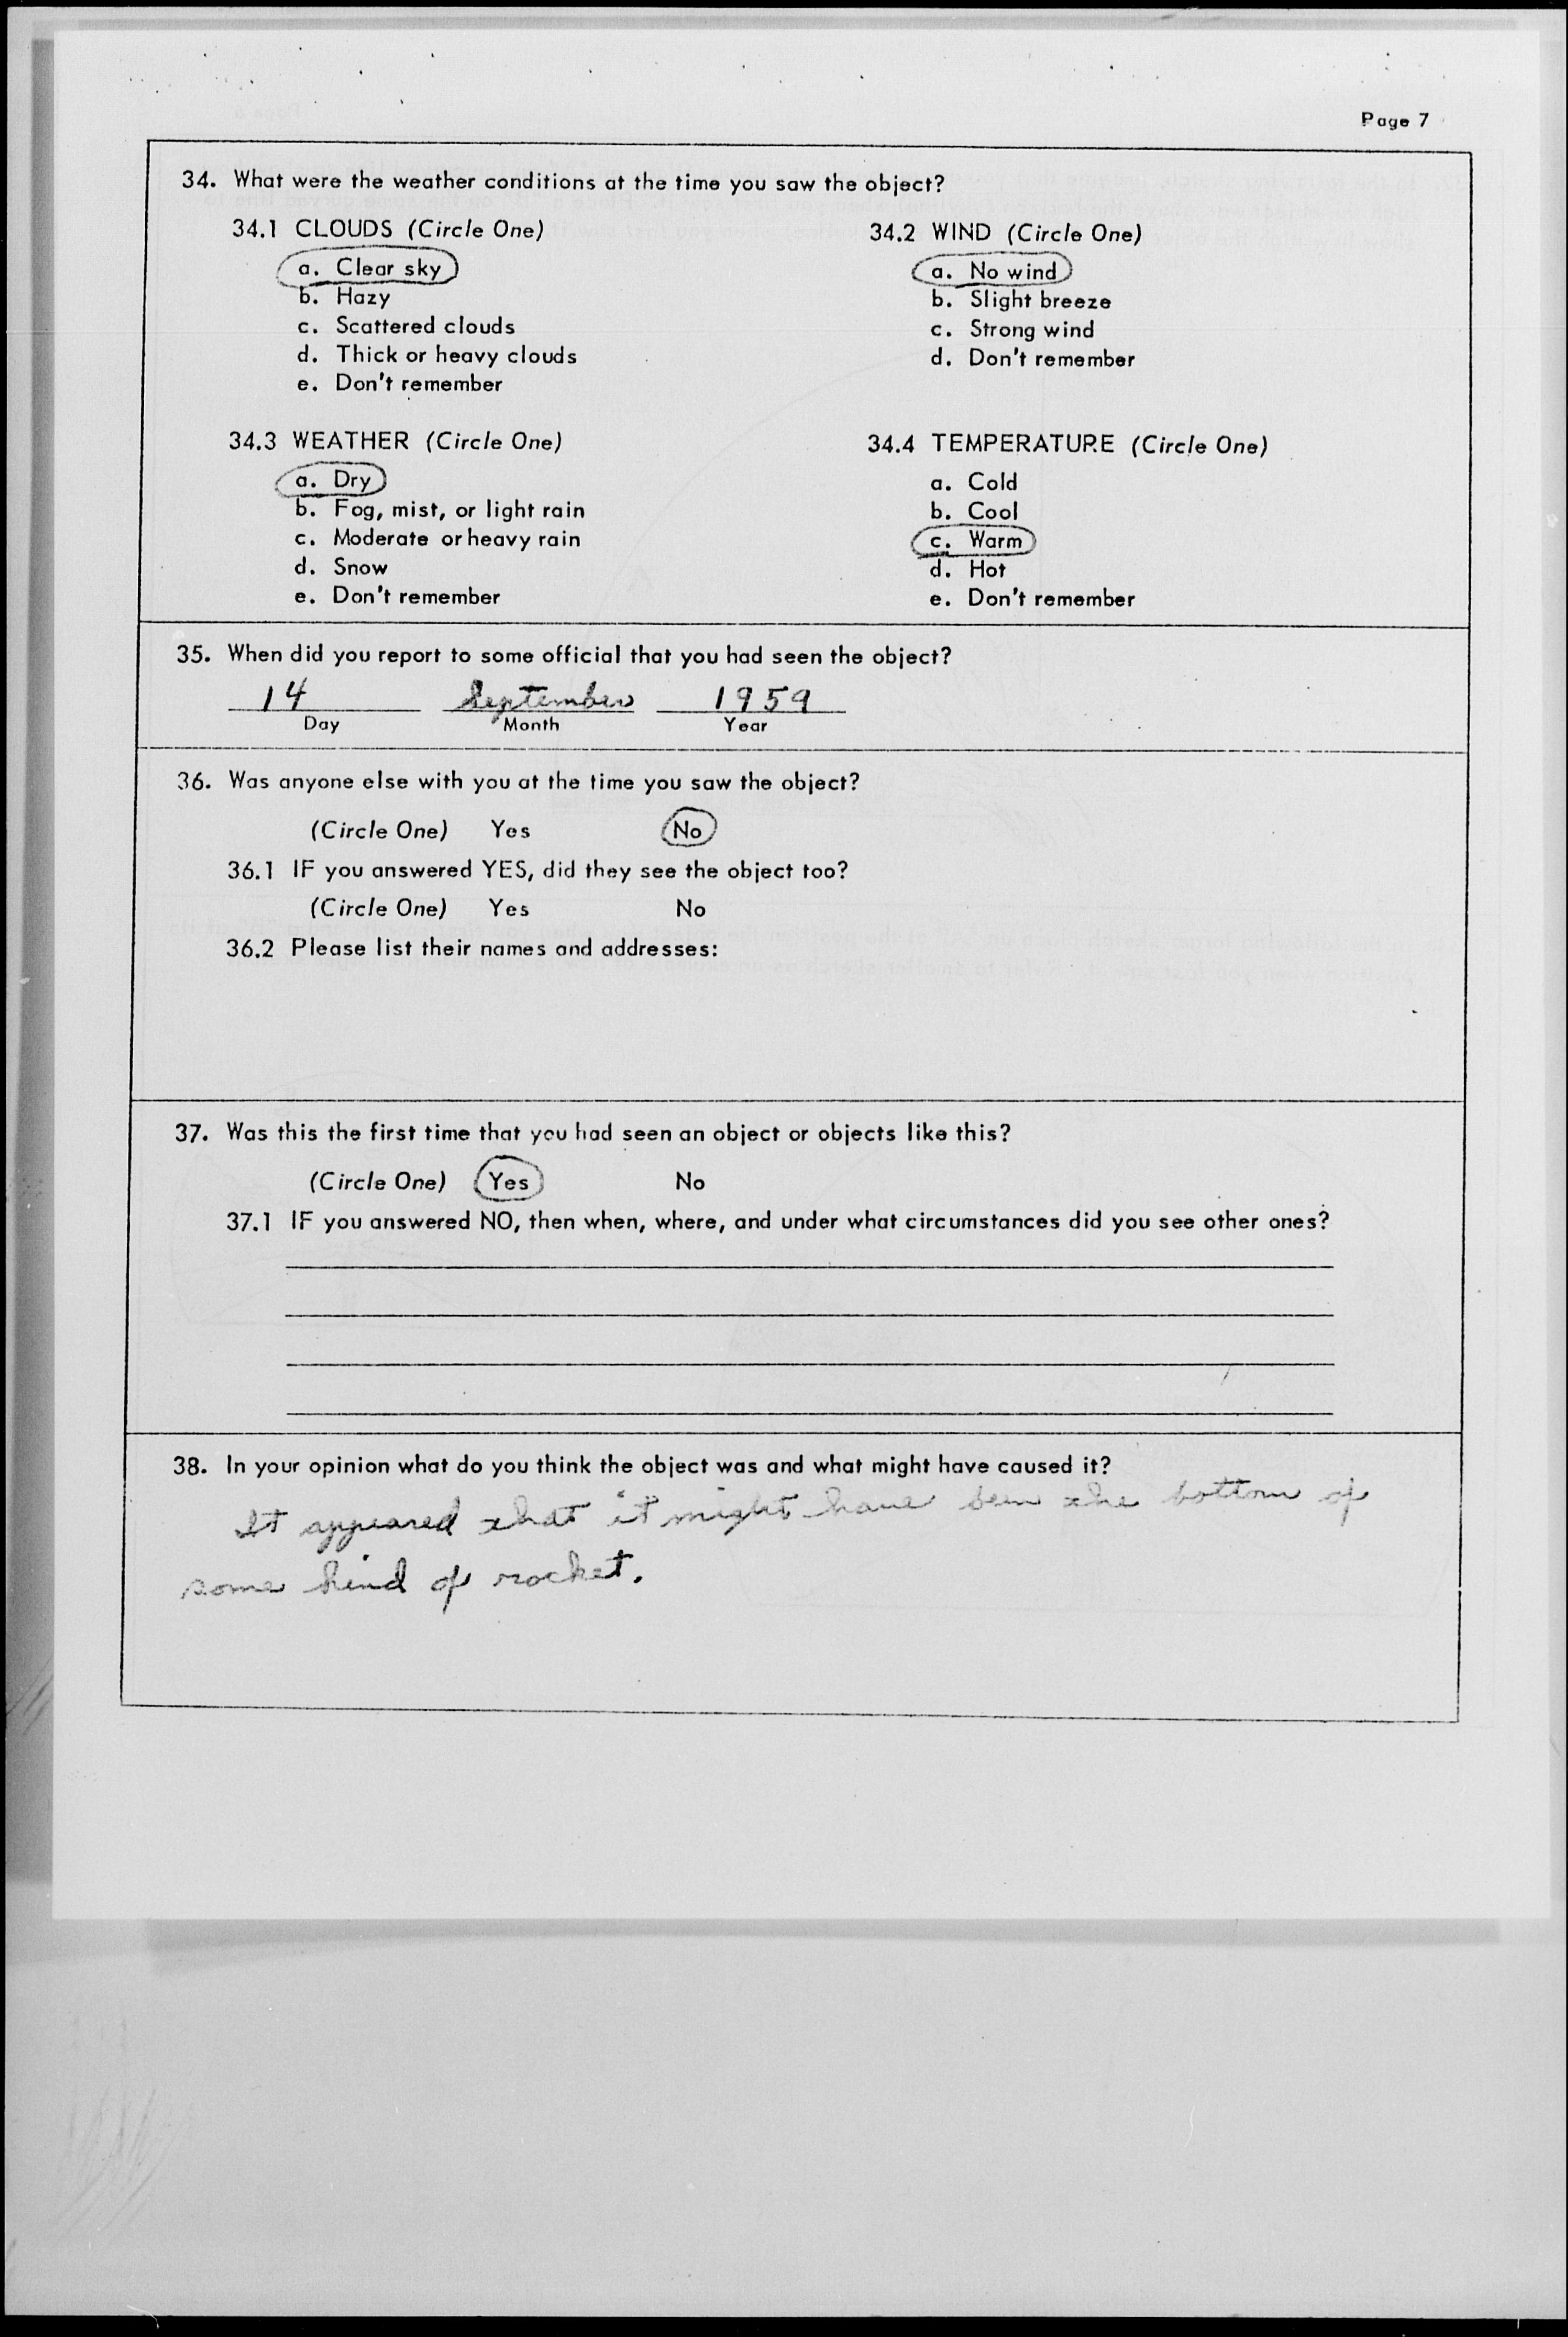 Page 7
34. What were the weather conditions at the time you saw the object?
34.1 CLOUDS (Circle One)
a. Clear sky
b. Hazy
c. Scattered clouds
d. Thick or heavy clouds
e. Don't remember
34.2 WIND (Circle One)
a. No wind
b. Slight breeze
c. Strong wind
d. Don't remember
34.3 WEATHER (Circle One)
a. Dry
b. Fog, mist, or light rain
c. Moderate or heavy rain
d. Snow
e. Don't remember
34.4 TEMPERATURE (Circle One)
a. Cold
b. Cool
c. Warm
d. Hot
e. Don't remember
35. When did you report to some official that you had seen the object?
14 September 1959
Day Month Year
36. Was anyone else with you at the time you saw the object?
(Circle One) Yes No
36.1 IF you answered YES, did they see the object too?
(Circle One) Yes No
36.2 Please list their names and addresses:
37. Was this the first time that you had seen an object or objects like this?
(Circle One) Yes No
37.1 IF you answered NO, then when, where, and under what circumstances did you see other ones?
38. In your opinion what do you think the object was and what might have caused it?
It appeared that it might have been the bottom of
some kind of rocket.